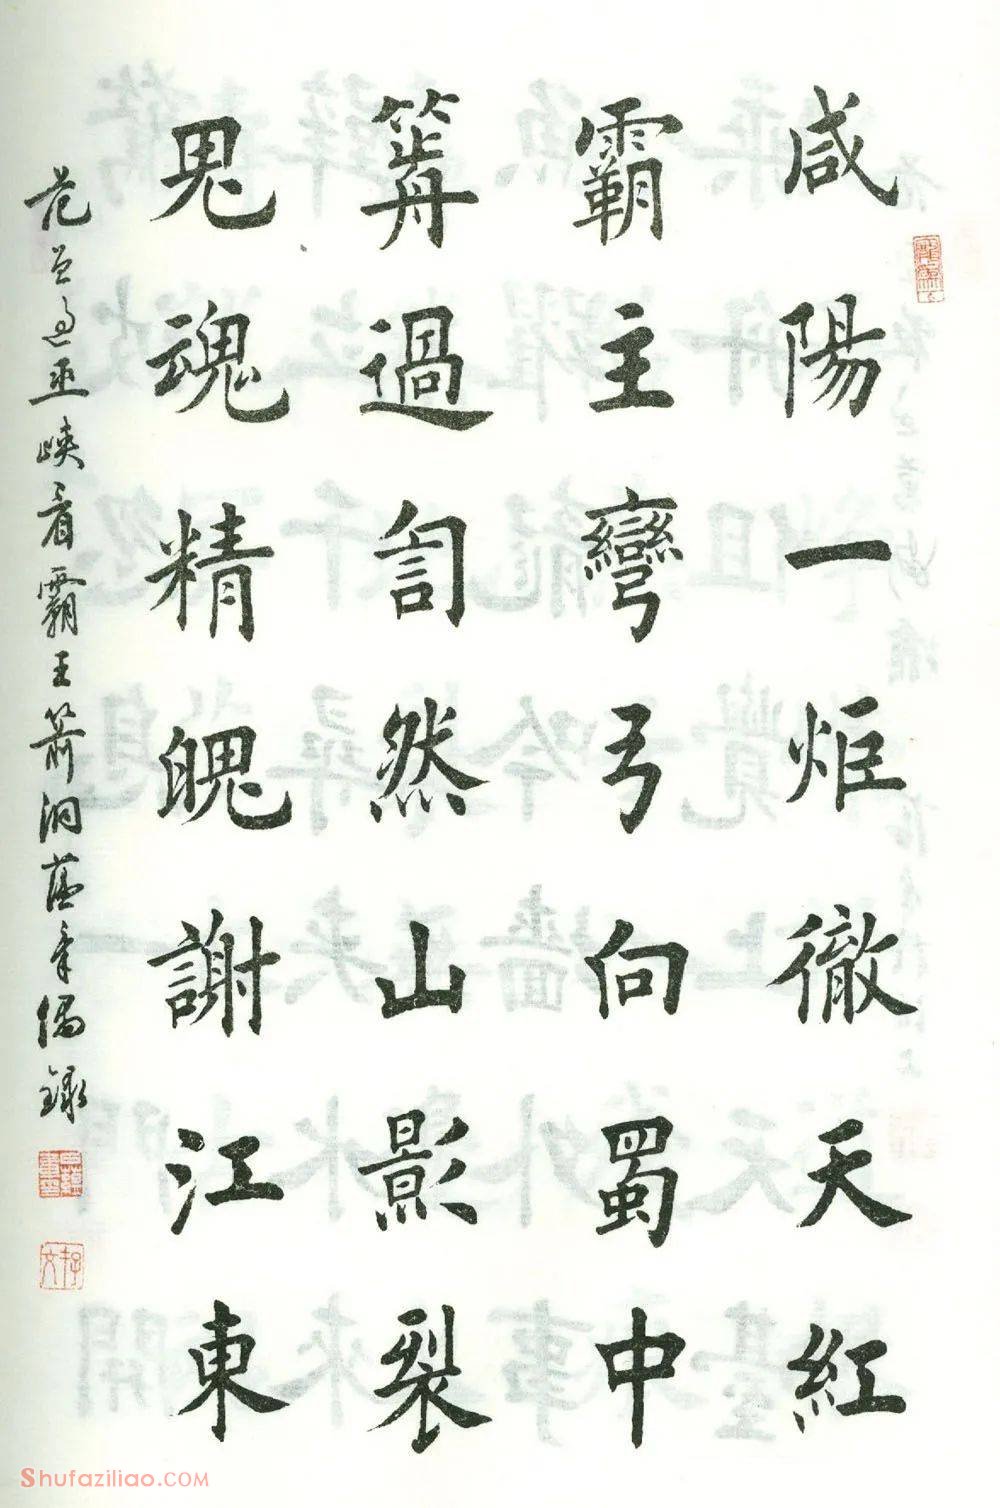 咸陽一炬徹天紅
霸主彎弓向蜀中
箭過訇然山影裂
鬼魂精魄謝江東
范曾過巫峽看霸王箭洞蘊章偶錄
Shufaziliao.com